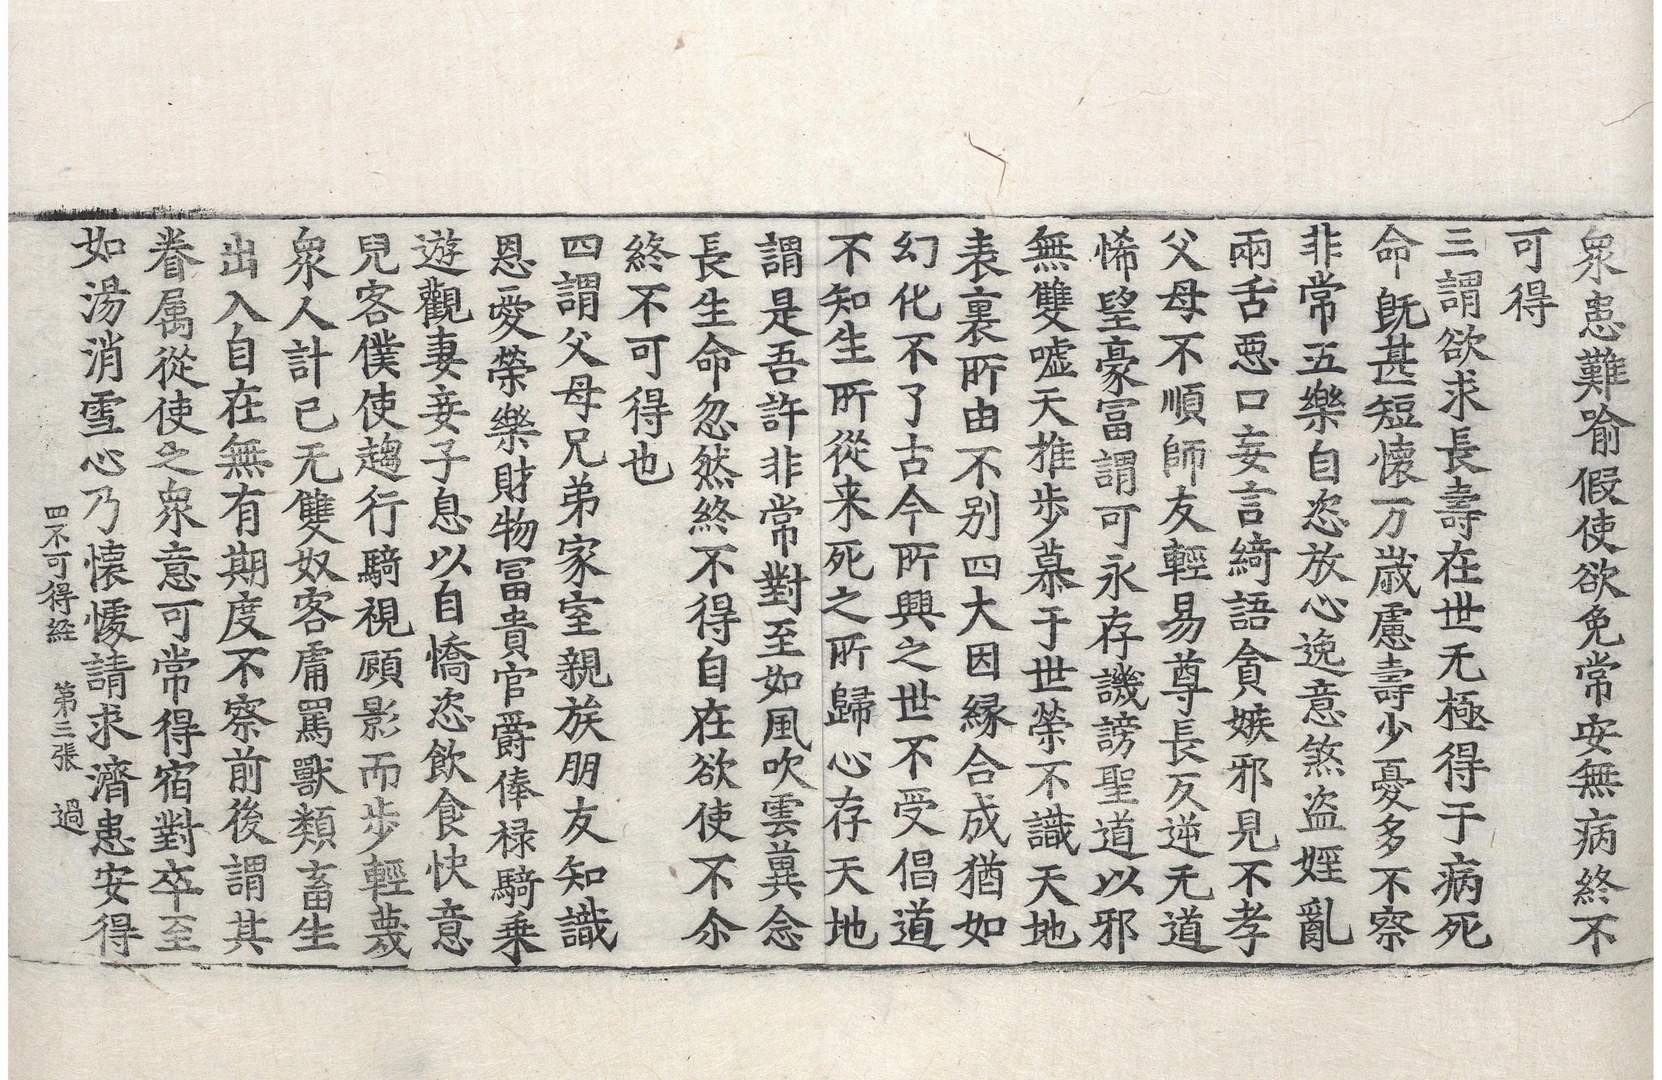 衆患難喻假使欲免常安無病終不
可得
三謂欲求長壽在世无極得于病死
命旣甚短懷万歲慮壽少憂多不察
非常五樂自恣放心逸意煞盗婬亂
兩舌惡口妄言綺語貪嫉邪見不孝
父母不順師友輕易尊長反逆无道
悕望豪富謂可永存譏謗聖道以邪
無雙噓天推步慕于世榮不識天地
表裏所由不别四大因縁合成猶如
幻化不了古今所興之世不受倡道
不知生所從来死之所歸心存天地
謂是吾許非常對至如風吹雲兾念
長生命忽然終不得自在欲使不尒
終不可得也
四謂父母兄弟家室親族朋友知識
恩愛榮樂財物冨貴官爵俸禄騎乗
遊觀妻妾子息以自憍恣飮食快意
兒客僕使趨行騎視顧影而步輕蔑
衆人計已无雙奴客庸罵獸類畜生
出入自在無有期度不察前後謂其
眷属從使之衆意可常得宿對卒至
如湯消雪心乃懷懅請求濟患安得
四不可得経 第三張 過